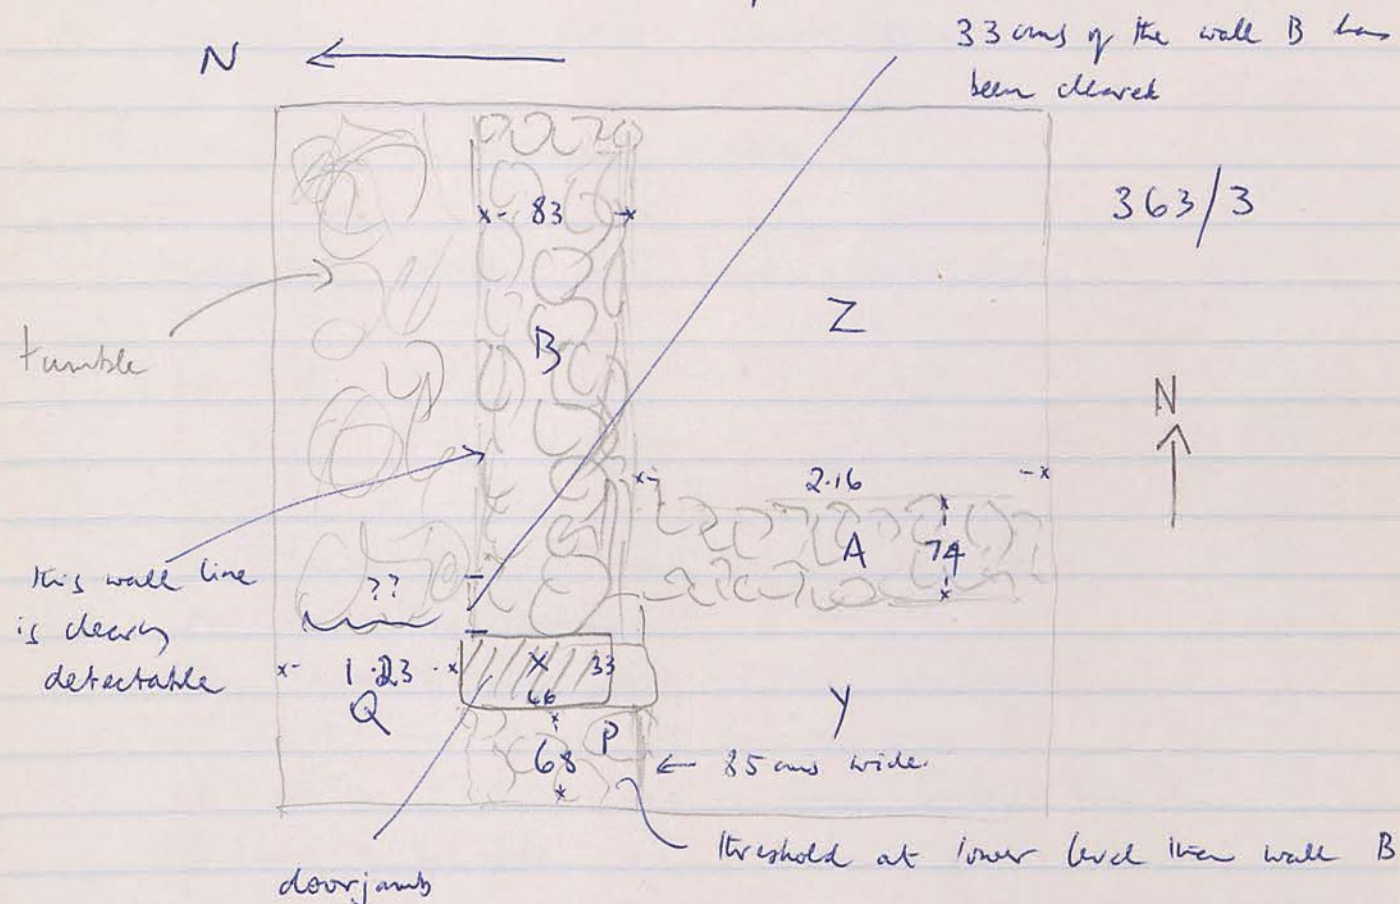 33 cms of the wall B has
been cleared
N
363/3
83
Z
B
tumble
N
2.16
A 74
this wall line
is clearly
detectable
??
1.23
X 33
66
Q
Y
P
68
← 85 cms wide.
threshold at lower level than wall B
doorjamb